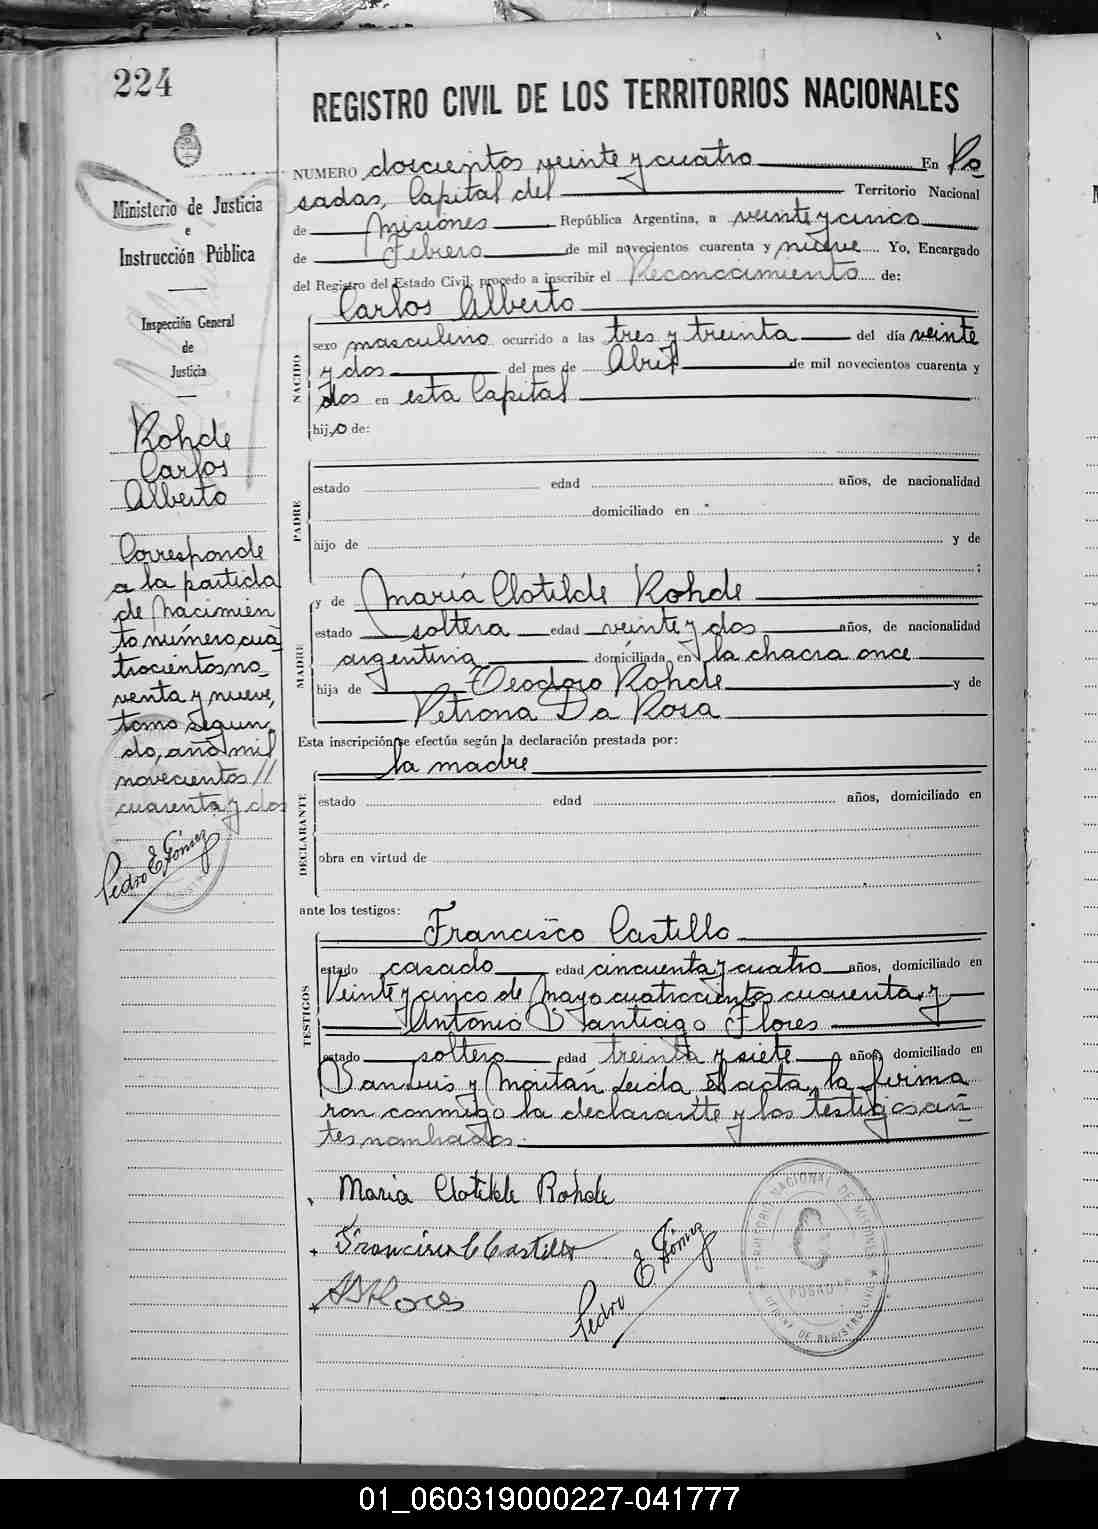 224
REGISTRO CIVIL DE LOS TERRITORIOS NACIONALES
Ministerio de Justicia
e
Instrucción Pública
Inspección General
de
Justicia
Rohde
Carlos
Alberto
Corresponde
a la partida
de nacimien
to número cua
trocientos no_
venta y nueve,
tomo segun_
do, año mil
novecientos //
cuarenta y dos
Pedro E Gómez
NUMERO doscientos veinte y cuatro En Po
sadas, Capital del Territorio Nacional
de Misiones República Argentina, a veinte y cinco
de Febrero de mil novecientos cuarenta y nueve Yo, Encargado
del Registro del Estado Civil, procedo a inscribir el Reconocimiento de:
Carlos Alberto
NACIDO
sexo masculino ocurrido a las tres y treinta del día veinte
y dos del mes de Abril de mil novecientos cuarenta y
dos en esta Capital
hijo de:
PADRE
estado edad años, de nacionalidad
domiciliado en
hijo de y de
;
MADRE
y de María Clotilde Rohde
estado soltera edad veinte y dos años, de nacionalidad
argentina domiciliada en la chacra once
hija de Teodoro Rohde y de
Petrona Da Rosa
Esta inscripción se efectúa según la declaración prestada por:
la madre
DECLARANTE
estado edad años, domiciliado en
obra en virtud de
ante los testigos:
TESTIGOS
Francisco Castillo
estado casado edad cincuenta y cuatro años, domiciliado en
Veinte y cinco de Mayo cuatrocientos cuarenta, y
Antonio Santiago Flores
estado soltero edad treinta y siete años, domiciliado en
San Luis y Maitán Leida el acta, la firma
ron conmigo la declarante y los testigos an
tes nombrados.
Maria Clotilde Rohde
Francisco C Castillo
A S Flores
Pedro E Gómez
TERRITORIO NACIONAL DE MISIONES
POSADAS
OFICINA DE REGISTRO CIVIL
01_060319000227-041777